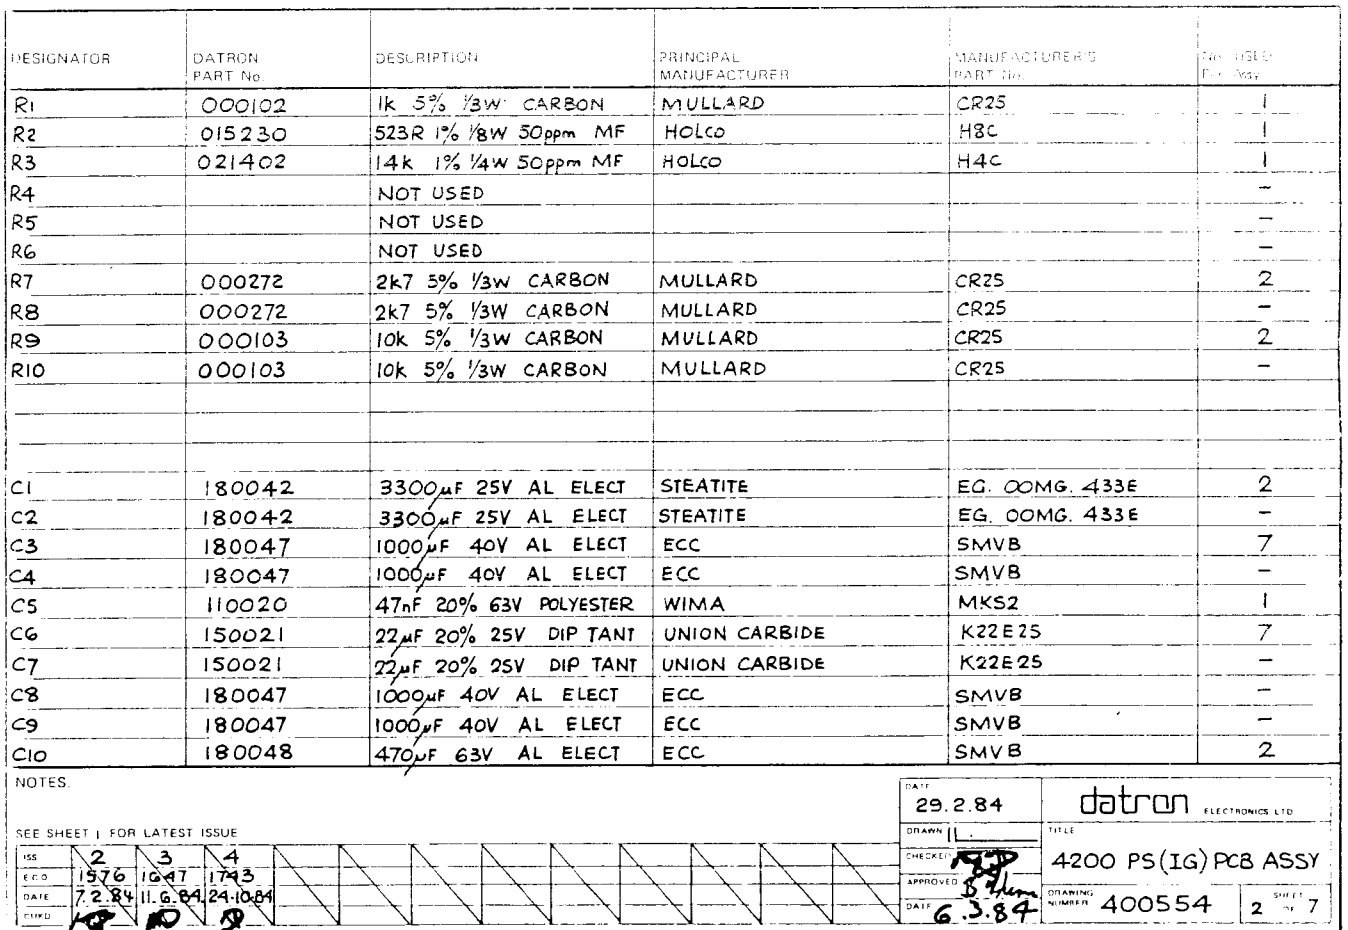 DESIGNATOR DATRON PART No. DESCRIPTION PRINCIPAL MANUFACTURER MANUFACTURER'S PART No. No. USED Per Assy
R1 000102 1k 5% 1/3W CARBON MULLARD CR25 1
R2 015230 523R 1% 1/8W 50ppm MF HOLCO H8C 1
R3 021402 14k 1% 1/4W 50ppm MF HOLCO H4C 1
R4 NOT USED -
R5 NOT USED -
R6 NOT USED -
R7 000272 2k7 5% 1/3W CARBON MULLARD CR25 2
R8 000272 2k7 5% 1/3W CARBON MULLARD CR25 -
R9 000103 10k 5% 1/3W CARBON MULLARD CR25 2
R10 000103 10k 5% 1/3W CARBON MULLARD CR25 -
C1 180042 3300µF 25V AL ELECT STEATITE EG. OOMG. 433E 2
C2 180042 3300µF 25V AL ELECT STEATITE EG. OOMG. 433E -
C3 180047 1000µF 40V AL ELECT ECC SMVB 7
C4 180047 1000µF 40V AL ELECT ECC SMVB -
C5 110020 47nF 20% 63V POLYESTER WIMA MKS2 1
C6 150021 22µF 20% 25V DIP TANT UNION CARBIDE K22E25 7
C7 150021 22µF 20% 25V DIP TANT UNION CARBIDE K22E25 -
C8 180047 1000µF 40V AL ELECT ECC SMVB -
C9 180047 1000µF 40V AL ELECT ECC SMVB -
C10 180048 470µF 63V AL ELECT ECC SMVB 2
NOTES.
SEE SHEET 1 FOR LATEST ISSUE
ISS 2 3 4
ECO 1576 1647 1743
DATE 7.2.84 11.6.84 24.10.84
CHKD
DATE 29.2.84
DRAWN
CHECKED
APPROVED
DATE 6.3.84
datron ELECTRONICS LTD
TITLE
4200 PS(IG) PCB ASSY
DRAWING NUMBER 400554
2 SHEET OF 7